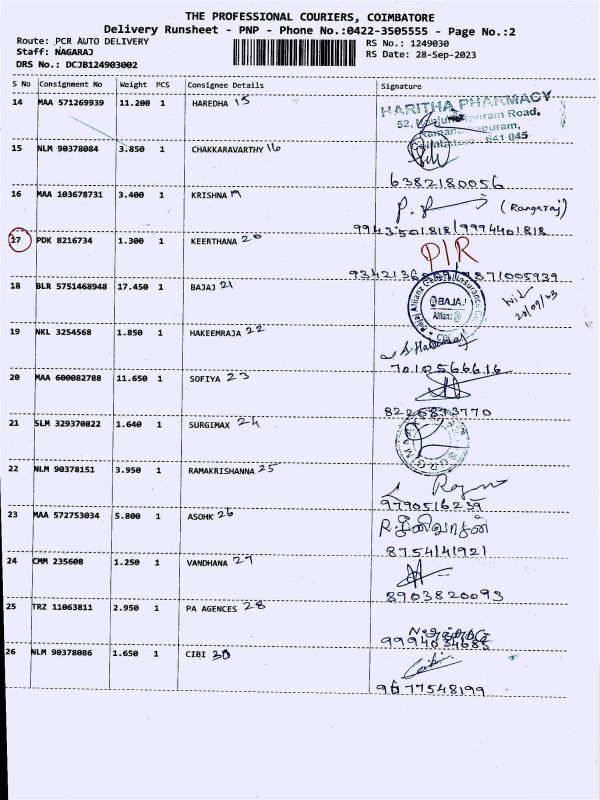 THE PROFESSIONAL COURIERS, COIMBATORE
Delivery Runsheet - PNP - Phone No.:0422-3505555 - Page No.:2
Route: PCR AUTO DELIVERY RS No.: 1249030
Staff: NAGARAJ RS Date: 28-Sep-2023
DRS No.: DCJB124903002
S No Consignment No Weight PCS Consignee Details Signature
14 MAA 571269939 11.200 1 HAREDHA 15
HARITHA PHARMACY
15 NLM 90378084 3.850 1 CHAKKARAVARTHY 16
6382180056
16 MAA 103678731 3.400 1 KRISHNA 19
(Rangaraj)
9943501818/9994401818
17 PDK 8216734 1.300 1 KEERTHANA 20 DIR
18 BLR 5751468948 17.450 1 BAJAJ 21
BAJAJ
Allianz
28/09/23
19 NKL 3254568 1.850 1 HAKEEMRAJA 22
7010566616
20 MAA 600082788 11.650 1 SOFIYA 23
21 SLM 329370822 1.640 1 SURGIMAX 24
22 NLM 90378151 3.950 1 RAMAKRISHANNA 25
9790516239
23 MAA 572753034 5.800 1 ASOHK 26
8754141921
24 CMM 235608 1.250 1 VANDHANA 27
8903820093
25 TRZ 11063811 2.950 1 PA AGENCES 28
9994034685
26 NLM 90378086 1.650 1 CIBI 30
9677548199